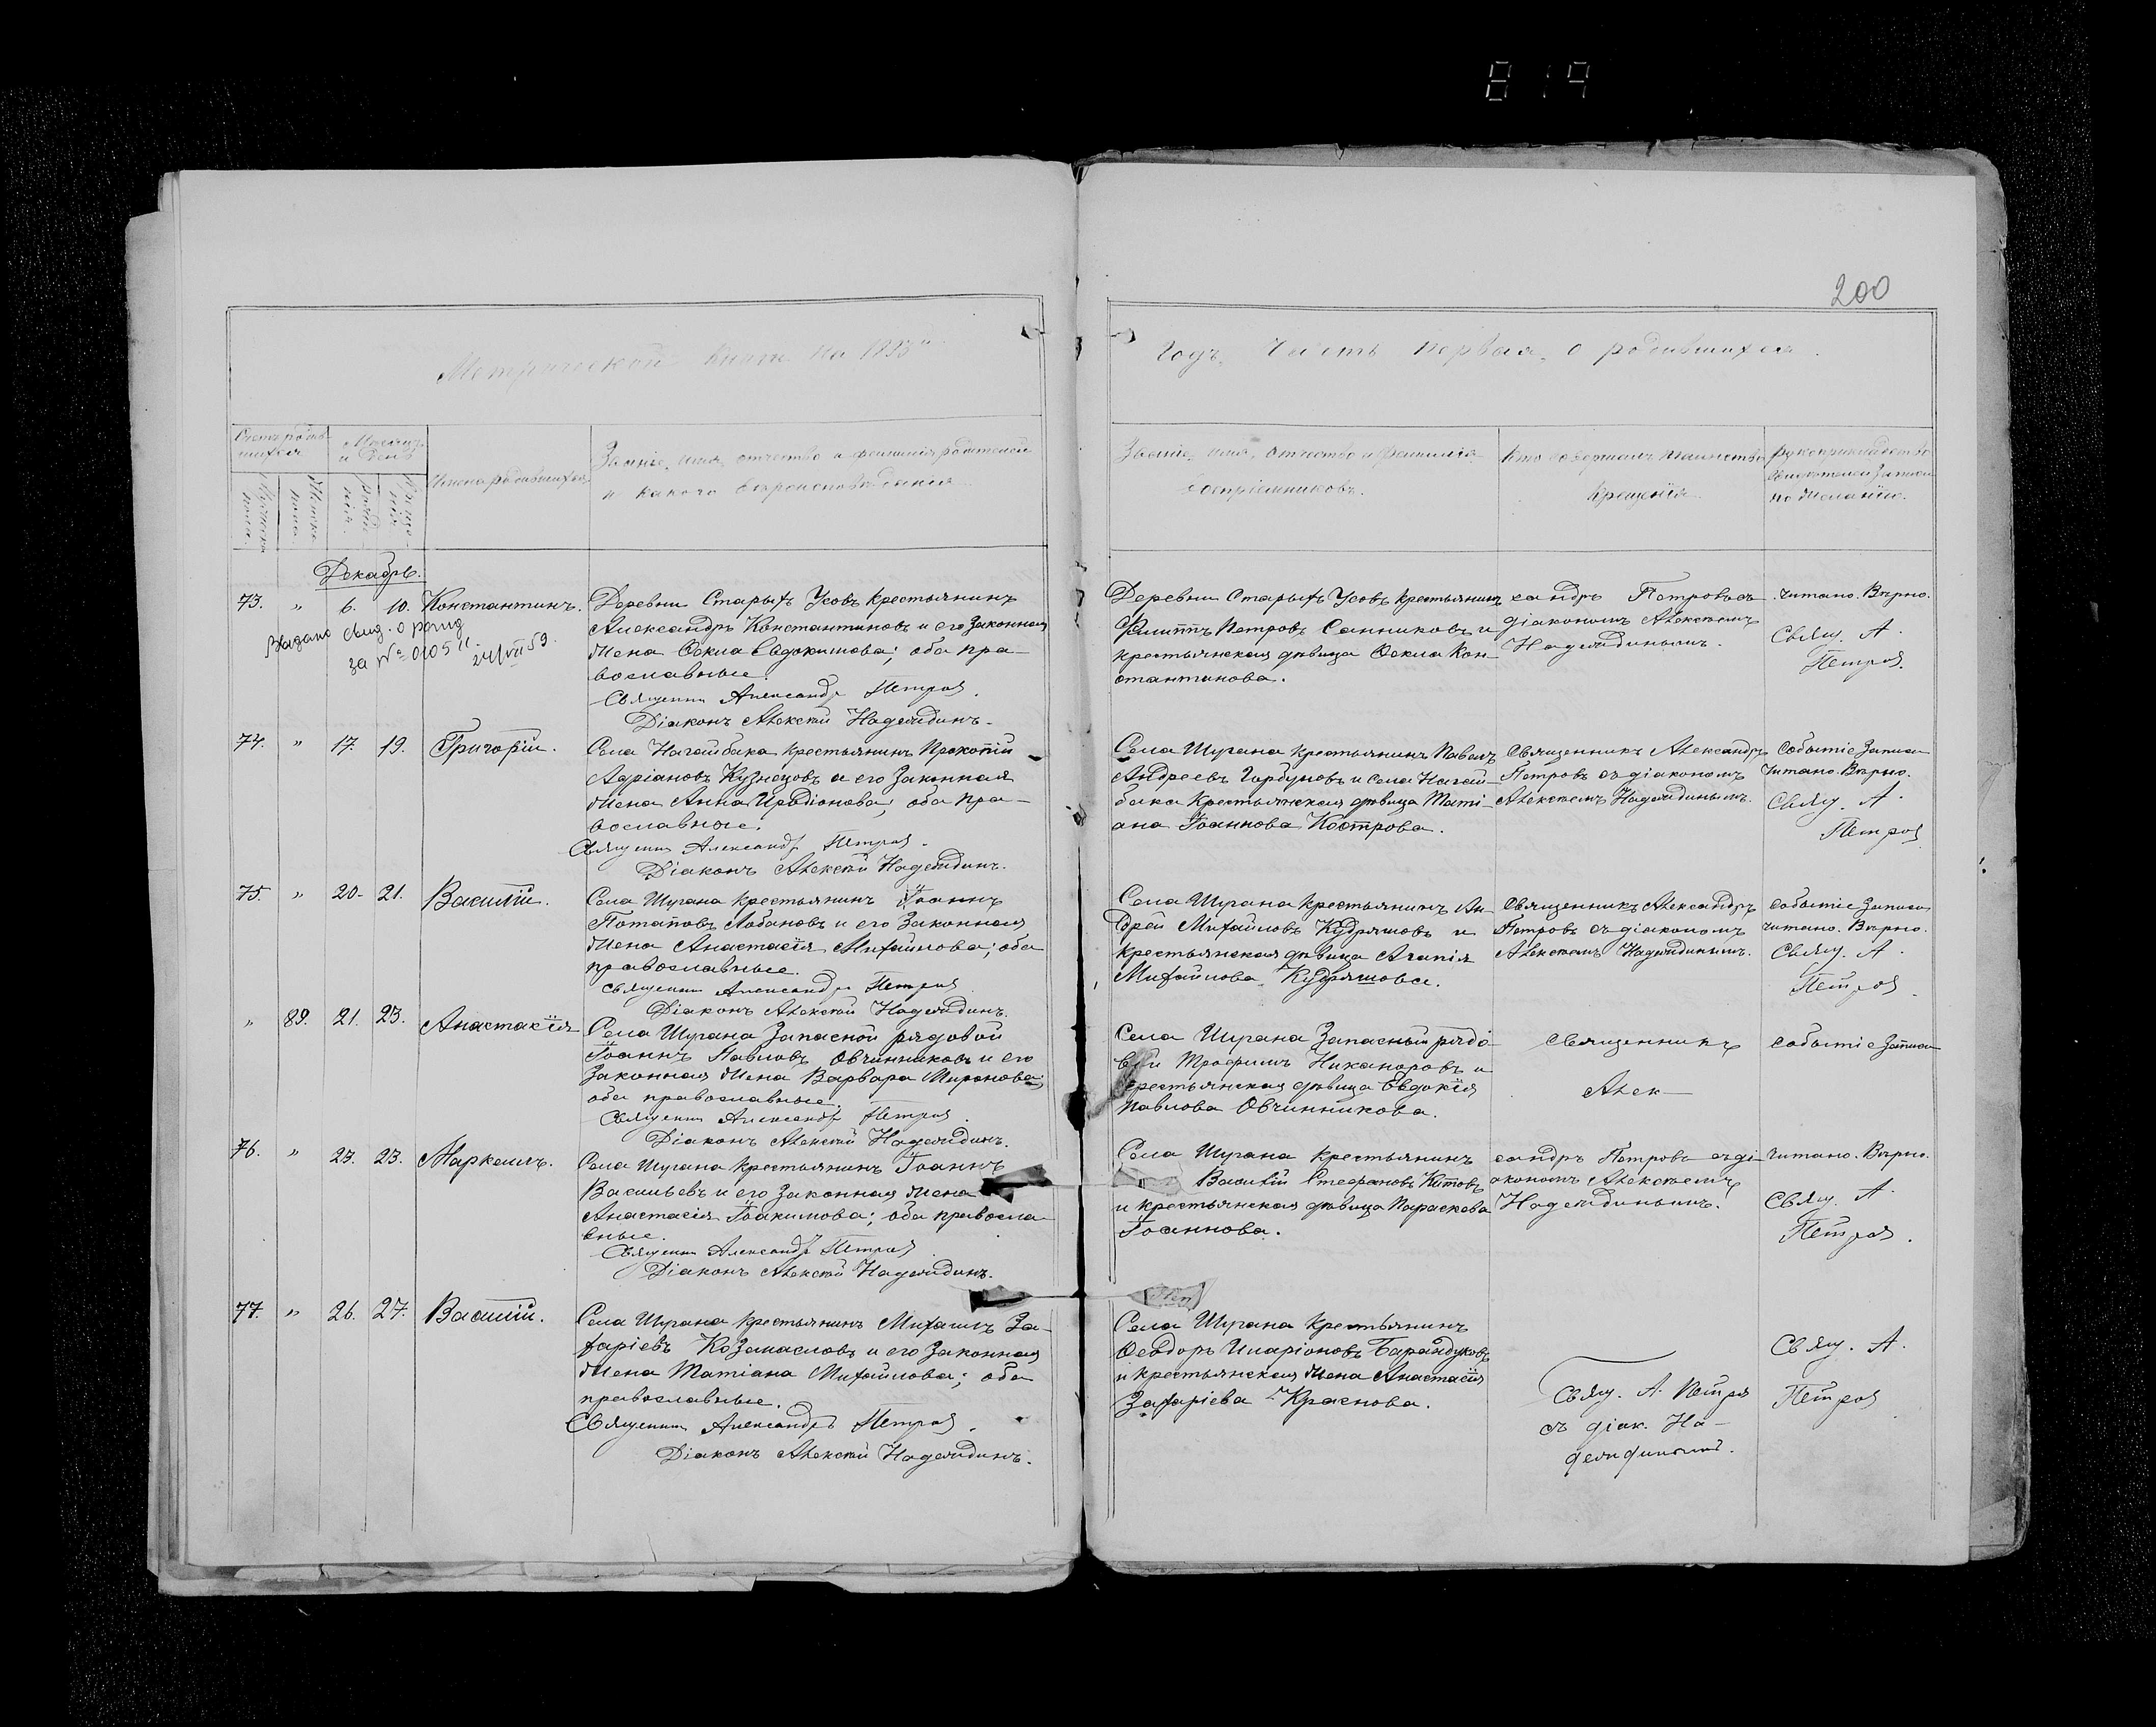 819
200
Метрической книги на 1893й
Годъ, Часть первая, о родившихся.
Счетъ родив-
шихся
Мѣсяцъ
и день
Мужска
пола.
Женска
пола.
рожде-
нія.
креще-
нія.
Имена родившихся
Званіе, имя, отчество и фамилія родителей
и какого вѣроисповѣданія
Званіе, имя, отчество и фамилія
воспріемниковъ.
Кто совершалъ таинство
крещенія
Рукоприкладство
свидѣтелей записи
по желанію.
Декабрь.
73. " 6. 10. Константинъ.
Выдано свид. о рожд
за № 010511. 24/VII 59.
Деревни Старыхъ Усовъ крестьянинъ
Александръ Константиновъ и его законная
жена Ѳекла Евдокимова; оба пра-
вославные.
Священникъ Александръ Петровъ.
Діаконъ Алексѣй Надеждинъ.
Деревни Старыхъ Усовъ крестьянинъ
Филиппъ Петровъ Санниковъ и
крестьянская дѣвица Ѳекла Кон-
стантинова.
сандръ Петровъ съ
діакономъ Алексѣемъ
Надеждинымъ.
читано. Вѣрно.
Свящ. А.
Петровъ.
74. " 17. 19. Григорій.
Села Нагайбака крестьянинъ Прокопій
Адріановъ Кузнецовъ и его законная
жена Анна Иродіонова; оба пра-
вославные.
Священникъ Александръ Петровъ.
Діаконъ Алексѣй Надеждинъ.
Села Шугана крестьянинъ Павелъ
Андреевъ Горбуновъ и села Нагай-
бака крестьянская дѣвица Тати-
ана Іоаннова Кострова.
Священникъ Александръ
Петровъ съ діакономъ
Алексѣемъ Надеждинымъ.
Событіе записи
читано. Вѣрно.
Свящ. А.
Петровъ
75. " 20. 21. Василій.
Села Шугана крестьянинъ Іоаннъ
Потаповъ Лобановъ и его законная
жена Анастасія Михайлова; оба
православные.
Священникъ Александръ Петровъ
Діаконъ Алексѣй Надеждинъ.
Села Шугана крестьянинъ Ан-
дрей Михайловъ Кудряшовъ и
крестьянская дѣвица Агапія
Михайлова Кудряшова.
Священникъ Александръ
Петровъ съ діакономъ
Алексѣемъ Надеждинымъ.
Событіе записи
читано. Вѣрно.
Свящ. А.
Петровъ.
" 89. 21. 23. Анастасія
Села Шугана запасной рядовой
Іоаннъ Павловъ Овчинниковъ и его
законная жена Варвара Миронова;
оба православные.
Священникъ Александръ Петровъ.
Діаконъ Алексѣй Надеждинъ.
Села Шугана запасный рядо-
вой Трофимъ Никаноровъ и
крестьянская дѣвица Евдокія
Павлова Овчинникова.
Священникъ
Алек-
Событіе записи
76. " 23. 23. Маркеллъ.
Села Шугана крестьянинъ Іоаннъ
Васильевъ и его законная жена
Анастасія Іоакимова; оба правосла-
вные.
Священникъ Александръ Петровъ
Діаконъ Алексѣй Надеждинъ.
Села Шугана крестьянинъ
Василій Стефановъ Китовъ
и крестьянская дѣвица Параскева
Іоаннова.
сандръ Петровъ съ ді-
акономъ Алексѣемъ
Надеждинымъ.
читано. Вѣрно.
Свящ. А.
Петровъ.
77. " 26. 27. Василій.
Села Шугана крестьянинъ Михаилъ За-
харіевъ Козмасловъ и его законная
жена Татіана Михайлова; оба
православные.
Священникъ Александръ Петровъ.
Діаконъ Алексѣй Надеждинъ.
Села Шугана крестьянинъ
Ѳеодоръ Иларіоновъ Барандуковъ
и крестьянская жена Анастасія
Захаріева Краснова.
Свящ. А. Петровъ
съ діак. На-
деждинымъ.
Свящ. А.
Петровъ